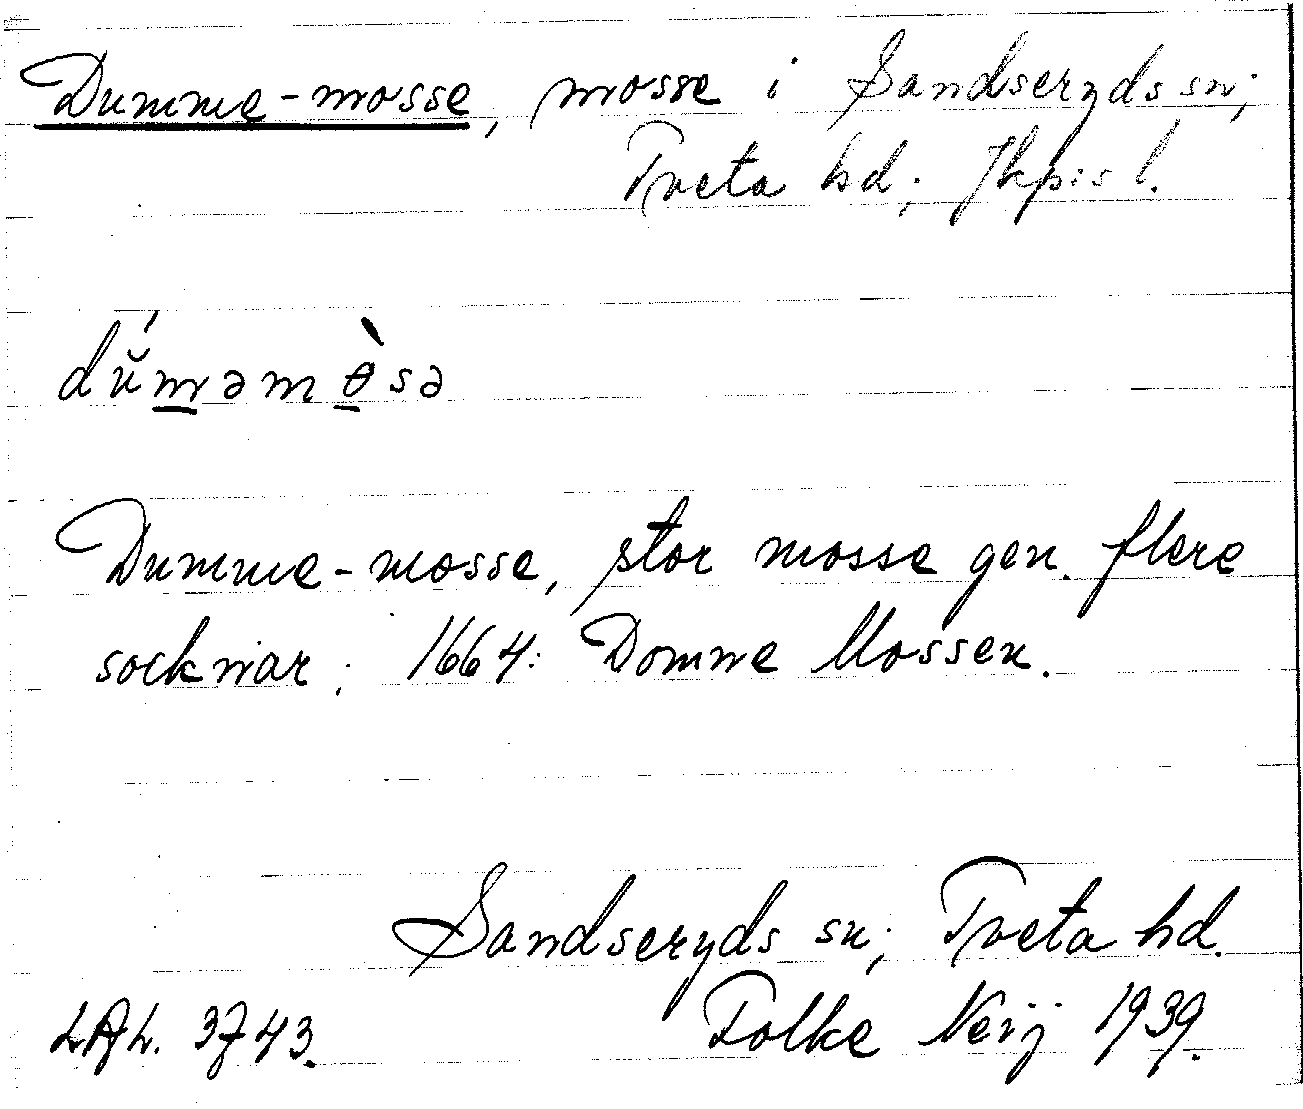 Dumme-mosse, mosse i Sandseryds sn;
Tveta hd; Jkpis l.
dŭ́m̲əmɵ̲̀sə
Dumme-mosse, stor mosse gen. flere
socknar; 1664: Domme Mossen.
Sandseryds sn; Tveta hd.
Folke Neij 1939.
3743.